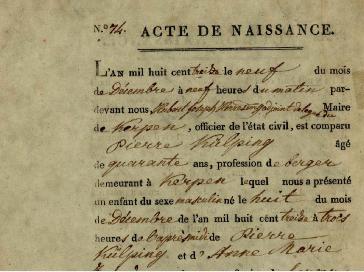 N.o 74. ACTE DE NAISSANCE.
L'AN mil huit cent treize le neuf du mois
de Décembre à neuf heures du matin par-
devant nous adjoint délégué du Maire
de Kerpen, officier de l'état civil, est comparu
Pierre Külping âgé
de quarante ans, profession de berger
demeurant à Kerpen lequel nous a présenté
un enfant du sexe masculin né le huit du mois
de Décembre de l'an mil huit cent treize à trois
heures de l'après midi de Pierre
Külping et d' Anne Marie